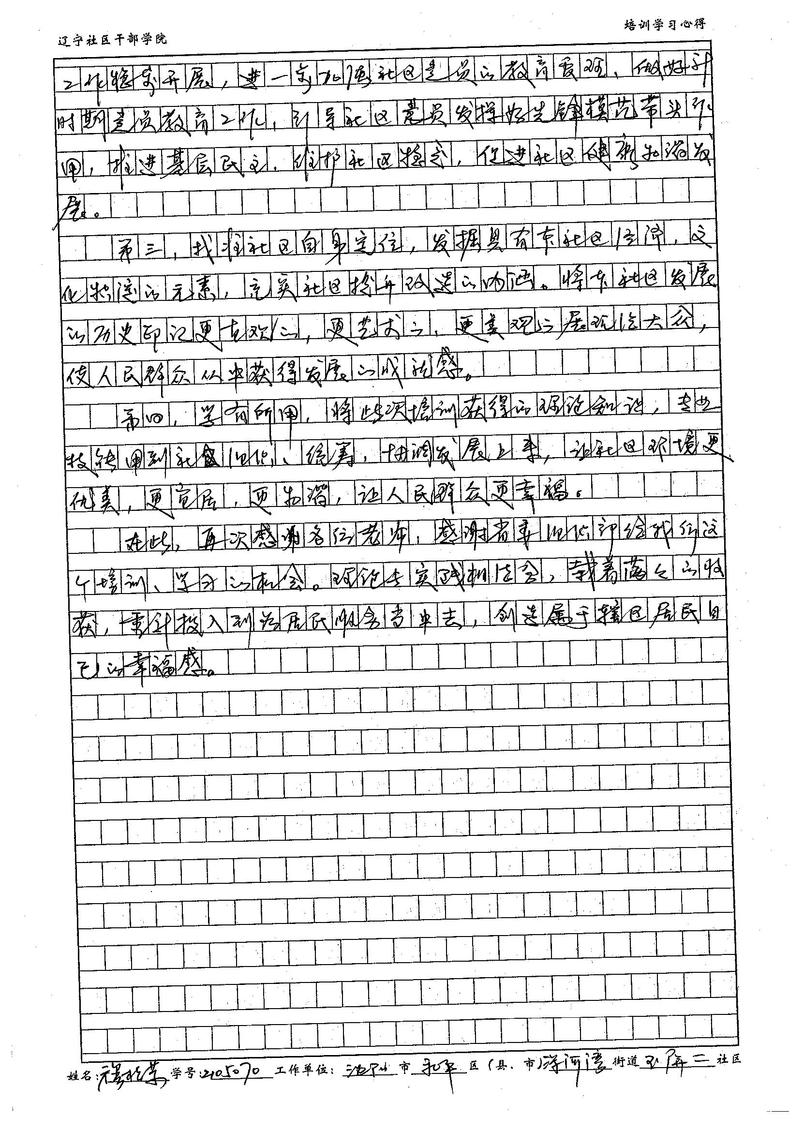 辽宁社区干部学院
培训学习心得
工作稳步开展，进一步加强社区党员的教育管理、做好新
时期党员教育工作，引导社区党员发挥好先锋模范带头作
用，推进基层民主，维护社区稳定，促进社区健康和谐发
展。
第三，找准社区自身定位，发掘具有本社区经济，文
化特色的元素，充实社区提升改造的内涵。将本社区发展
的历史印记更直观的，更艺术的，更美观的展现给大众，
使人民群众从中获得发展的成就感。
第四，学有所用，将此次培训获得的理论知识，专业
技能用到社会组织、统筹，协调发展上来，让社区环境更
优美，更宜居，更和谐，让人民群众更幸福。
在此，再次感谢各位老师，感谢省委组织部给我们这
个培训、学习的机会。理论与实践相结合，载着满满的收
获，重新投入到为居民服务当中去，创造属于辖区居民自
己的幸福感。
姓名： 学号：2105070 工作单位：沈阳 市 和平 区（县、市）浑河湾 街道 玉屏二 社区